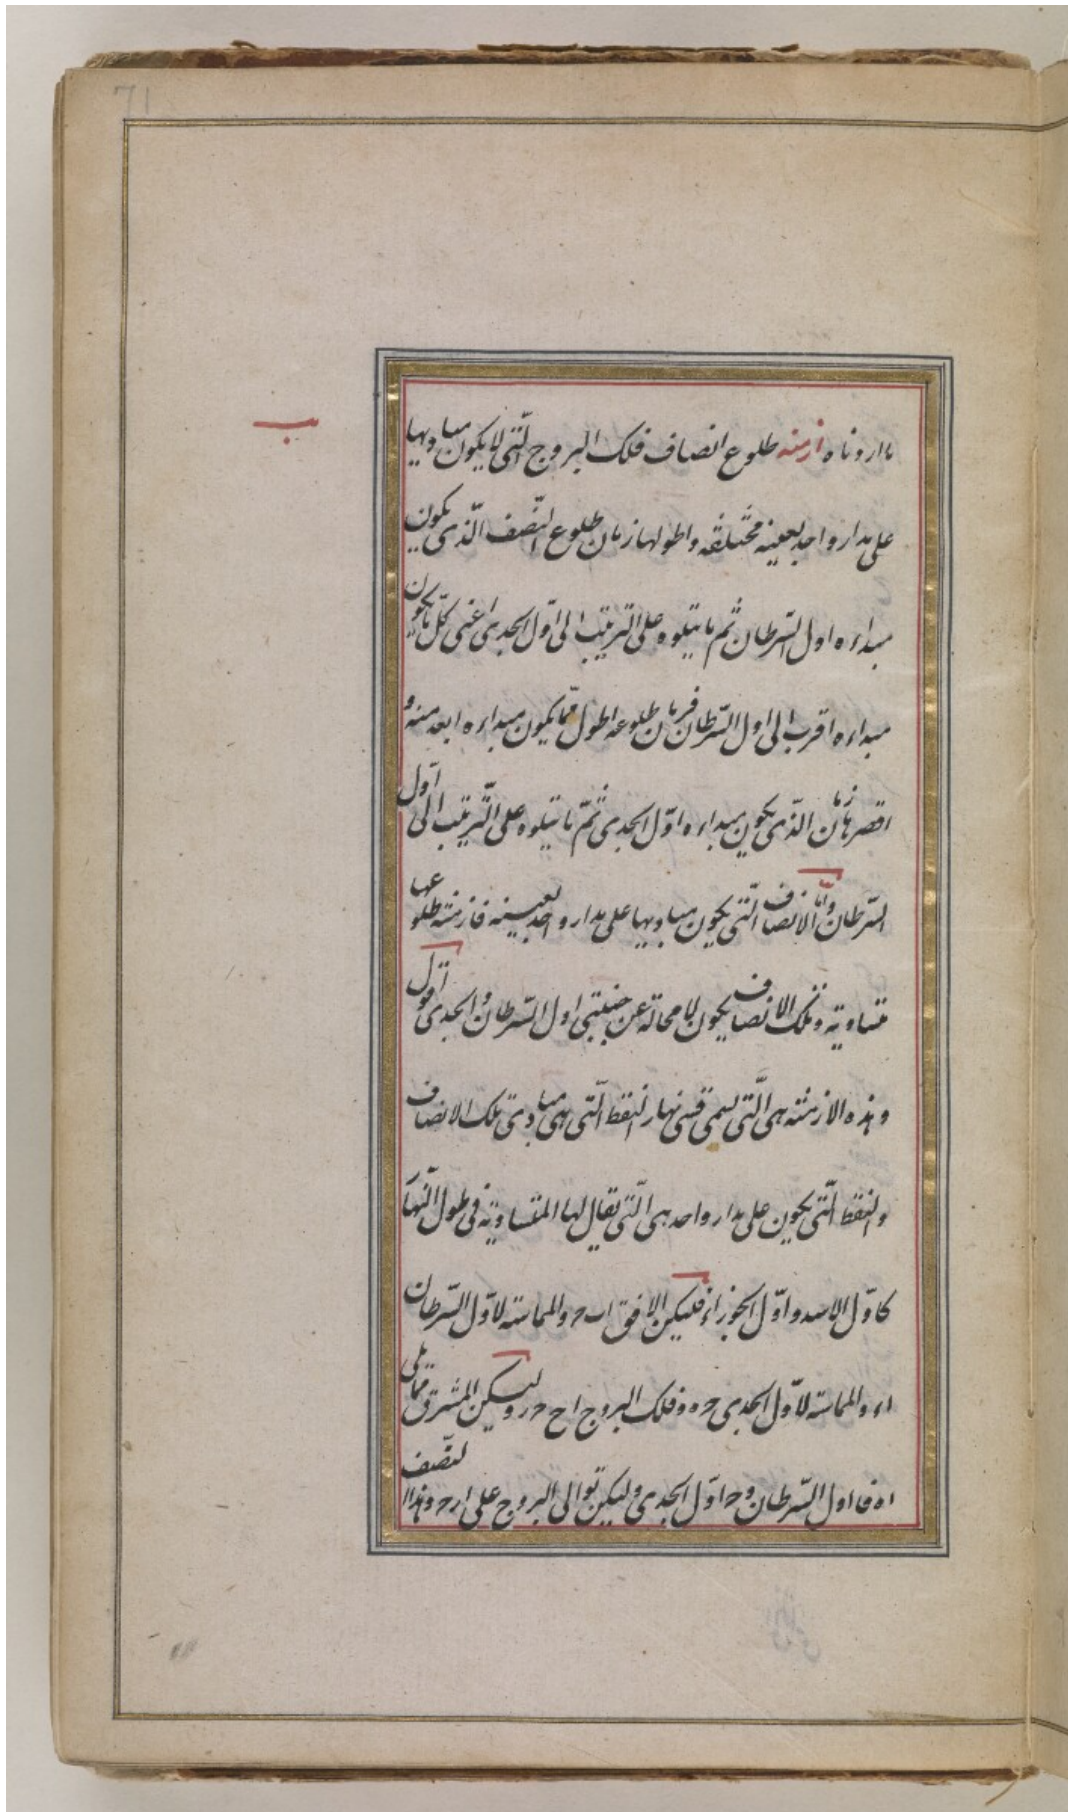 71
ما اردناه ازمنه طلوع انصاف فلك البروج الّتى لا يكون مباديها
ب
على مدار واحد بعينه مختلفه واطولها زمان طلوع النّصف الّذى يكون
مبداءه اول السّرطان ثم ما يتلوه على التّرتيب الى اوّل الجدى اعنى كلّ ما يكون
مبداءه اقرب الى اول السّرطان فزمان طلوعه اطول ممّا يكون مبداءه ابعد منه و
اقصرها زمان الّذى يكون مبداءه اوّل الجدى ثمّ ما يتلوه على التّرتيب الى اوّل
السّرطان وامّا الانصاف الّتى يكون مباديها على مدار واحد بعينه فازمنة طلوعها
متساوية وتلك الانصاف يكون لا محالة عن جنبتى اول السّرطان والجدى اقول
وهذه الازمنة هى الّتى تسمى قسى نهار النقط الّتى هى مبادى تلك الانصاف
والنقط الّتى يكون على مدار واحد هى الّتى يقال لها المتساوية فى طول النّهار
كاوّل الاسد واوّل الجوزاء فليكن الافق ا ب ح والمماسة لاوّل السّرطان
ا ء والمماسة لاوّل الجدى ح ه وفلك البروج وليكن المشرق ممّا يلى
ا ه فا اول السّرطان و ح اوّل الجدى وليكن توالى البروج على ا ر ح وهذا النّصف